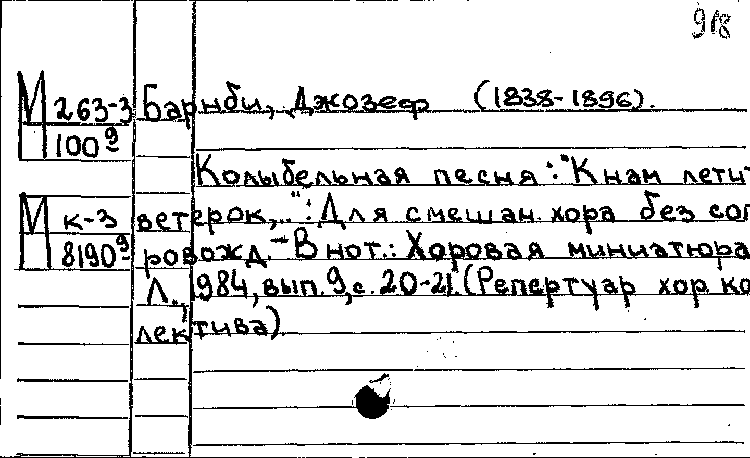 918
М 263-3 Барнби, Джозеф (1838-1896).
100⁹
Колыбельная песня: "К нам лети
М к-3 ветерок,..": Для смешан. хора без соп
8190⁹ ровожд. - В нот.: Хоровая миниатюра
Л., 1984, вып. 9, с. 20-21. (Репертуар хор. ко
лектива)